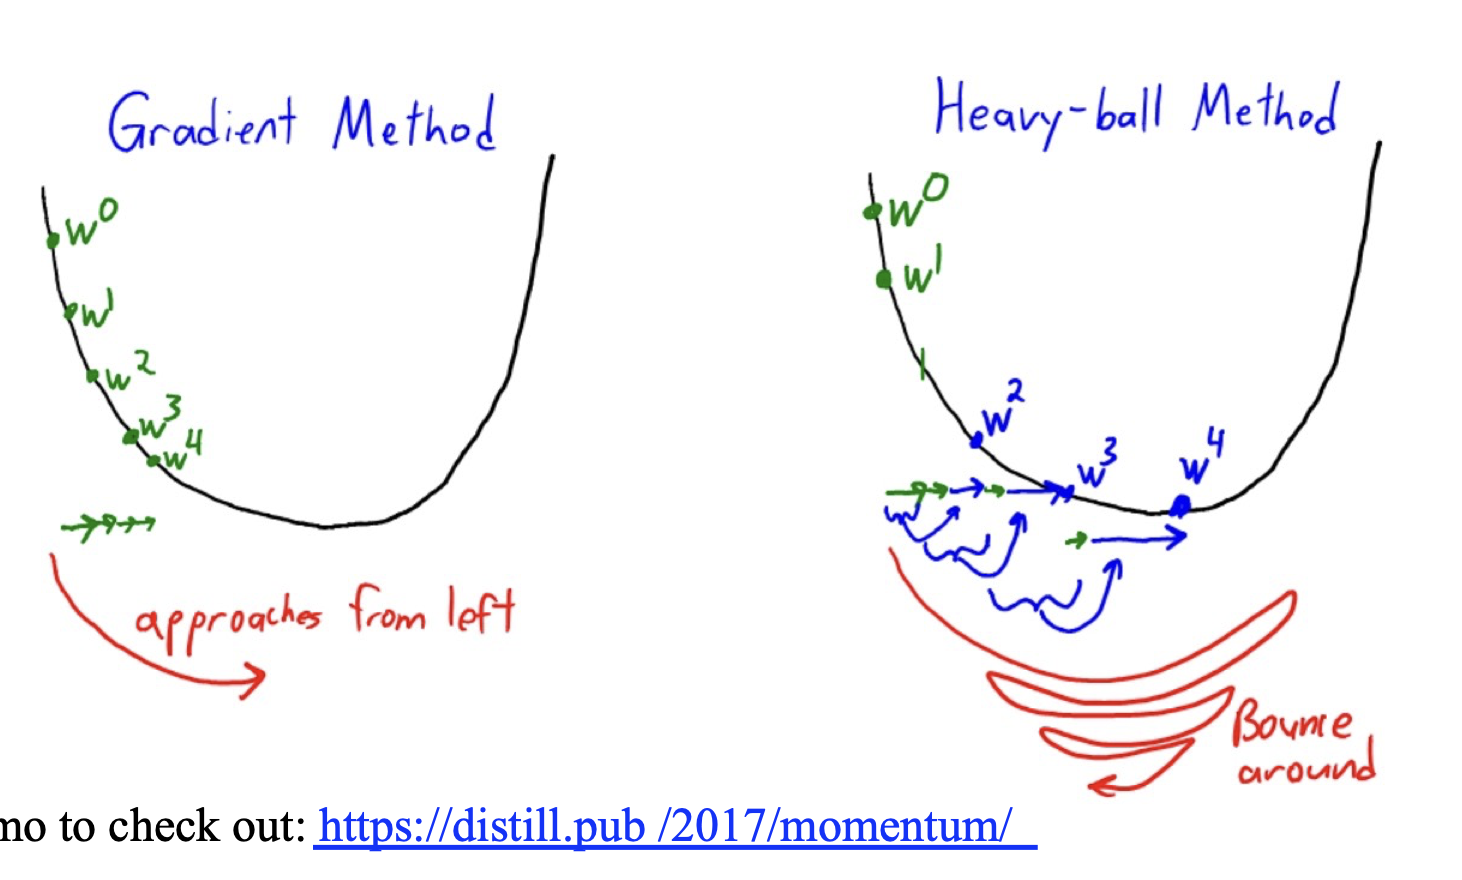 Gradient Method
w⁰
w¹
w²
w³
w⁴
approaches from left
Heavy-ball Method
w⁰
w¹
w²
w³
w⁴
Bounce
around
mo to check out: https://distill.pub /2017/momentum/